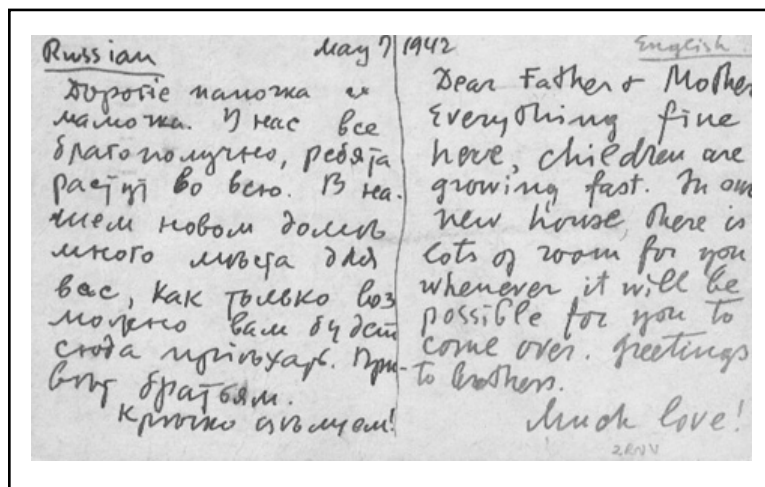 Russian
May 7 1942
Дорогіе папочка и
мамочка. У нас все
благополучно, ребята
растут во всю. В на-
шем новом домѣ
много мѣста для
вас, как только воз
можно вам будет
сюда пріѣхать. При-
вѣт братьям.
Крѣпко цѣлуем!
English
Dear Father & Mother
Everything fine
here, children are
growing fast. In our
new house, there is
lots of room for you
whenever it will be
possible for you to
come over. Greetings
to brothers.
Much love!